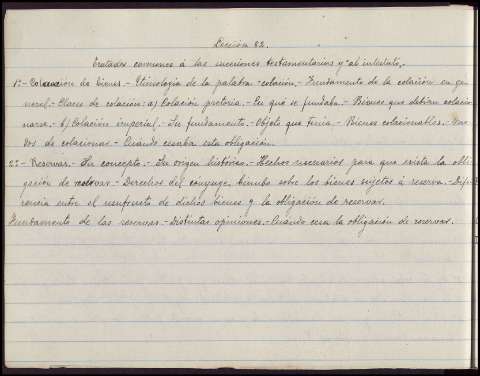 Lección 82.
Tratados comunes á las sucesiones testamentarias y ab intestato.
1º.- Colación de bienes.- Etimología de la palabra colación.- Fundamento de la colación en ge-
neral.- Clases de colación: a) Colación pretoria.- En que se fundaba.- Bienes que debían colacio-
narse.- b) Colación imperial.- Su fundamento.- Objeto que tenía.- Bienes colacionables.- Mo-
dos de colacionar.- Cuando cesaba esta obligación.
2º.- Reservas.- Su concepto.- Su origen histórico.- Hechos necesarios para que exista la obli-
gación de reservar.- Derechos del cónyuge binubo sobre los bienes sujetos á reserva.- Dife-
rencia entre el usufructo de dichos bienes y la obligación de reservar.
Fundamento de las reservas.- Distintas opiniones.- Cuando cesa la obligación de reservar.